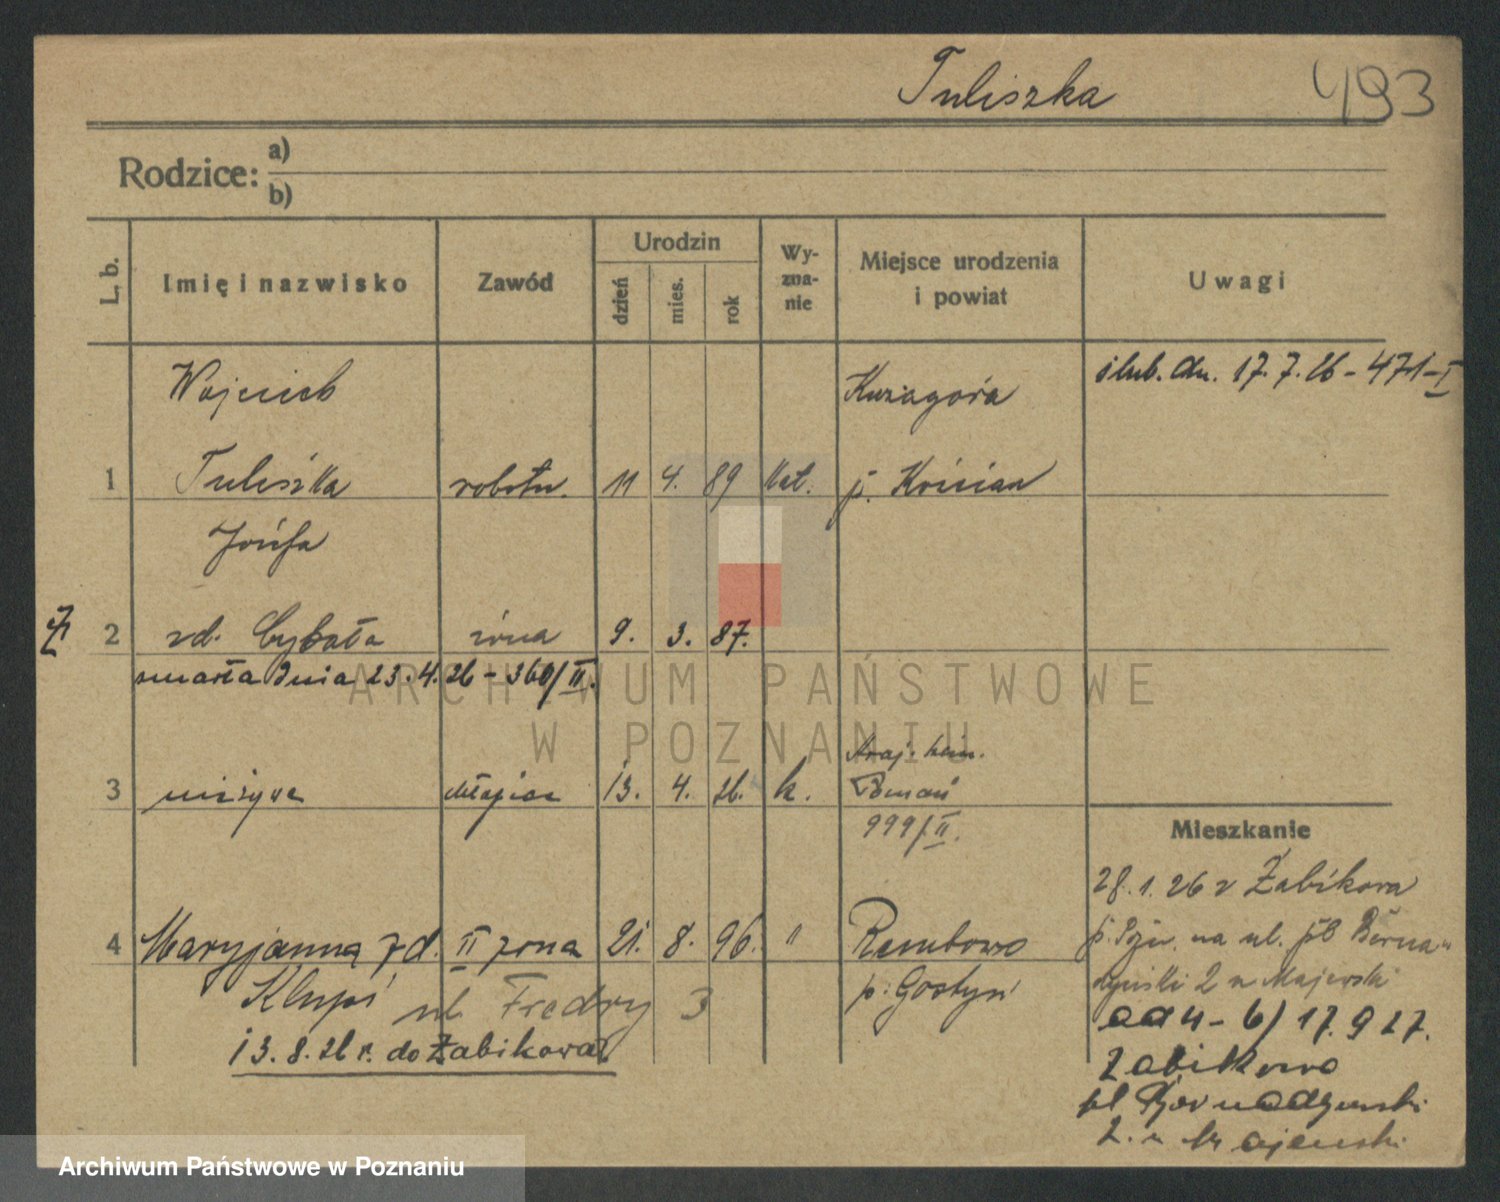 Tuliszka
493
Rodzice: a)
b)
L. b.
Imię i nazwisko
Zawód
Urodzin
dzień
mies.
rok
Wy-
zna-
nie
Miejsce urodzenia
i powiat
Uwagi
Wojciech
Kurzagóra
ślub. dn. 17.7.26 - 471-I
1 Tuliszka robotn. 11 4. 89 kat. p. Kościan
Józefa
Ż 2 zd. Cybała żona 9. 3. 87.
zmarła dnia 23.4.26 - 360/II.
3 nieżywe chłopiec 13. 4. 26. k. Poznań
999/II.
Mieszkanie
28.1.26 z Żabikowa
4 Maryjanna zd. II żona 21. 8. 96. " Rembowo
p. Pozn. na ul. pl. Berna-
Klupś ul. Fredry 3 p. Gostyń
dyński 2 u Majewski
od 4-6) 17.9 27.
13.8.26 r. do Żabikowa
Żabikowo
pl Bernadyński
2. u Majewski
ARCHIWUM PAŃSTWOWE
W POZNANIU
Archiwum Państwowe w Poznaniu